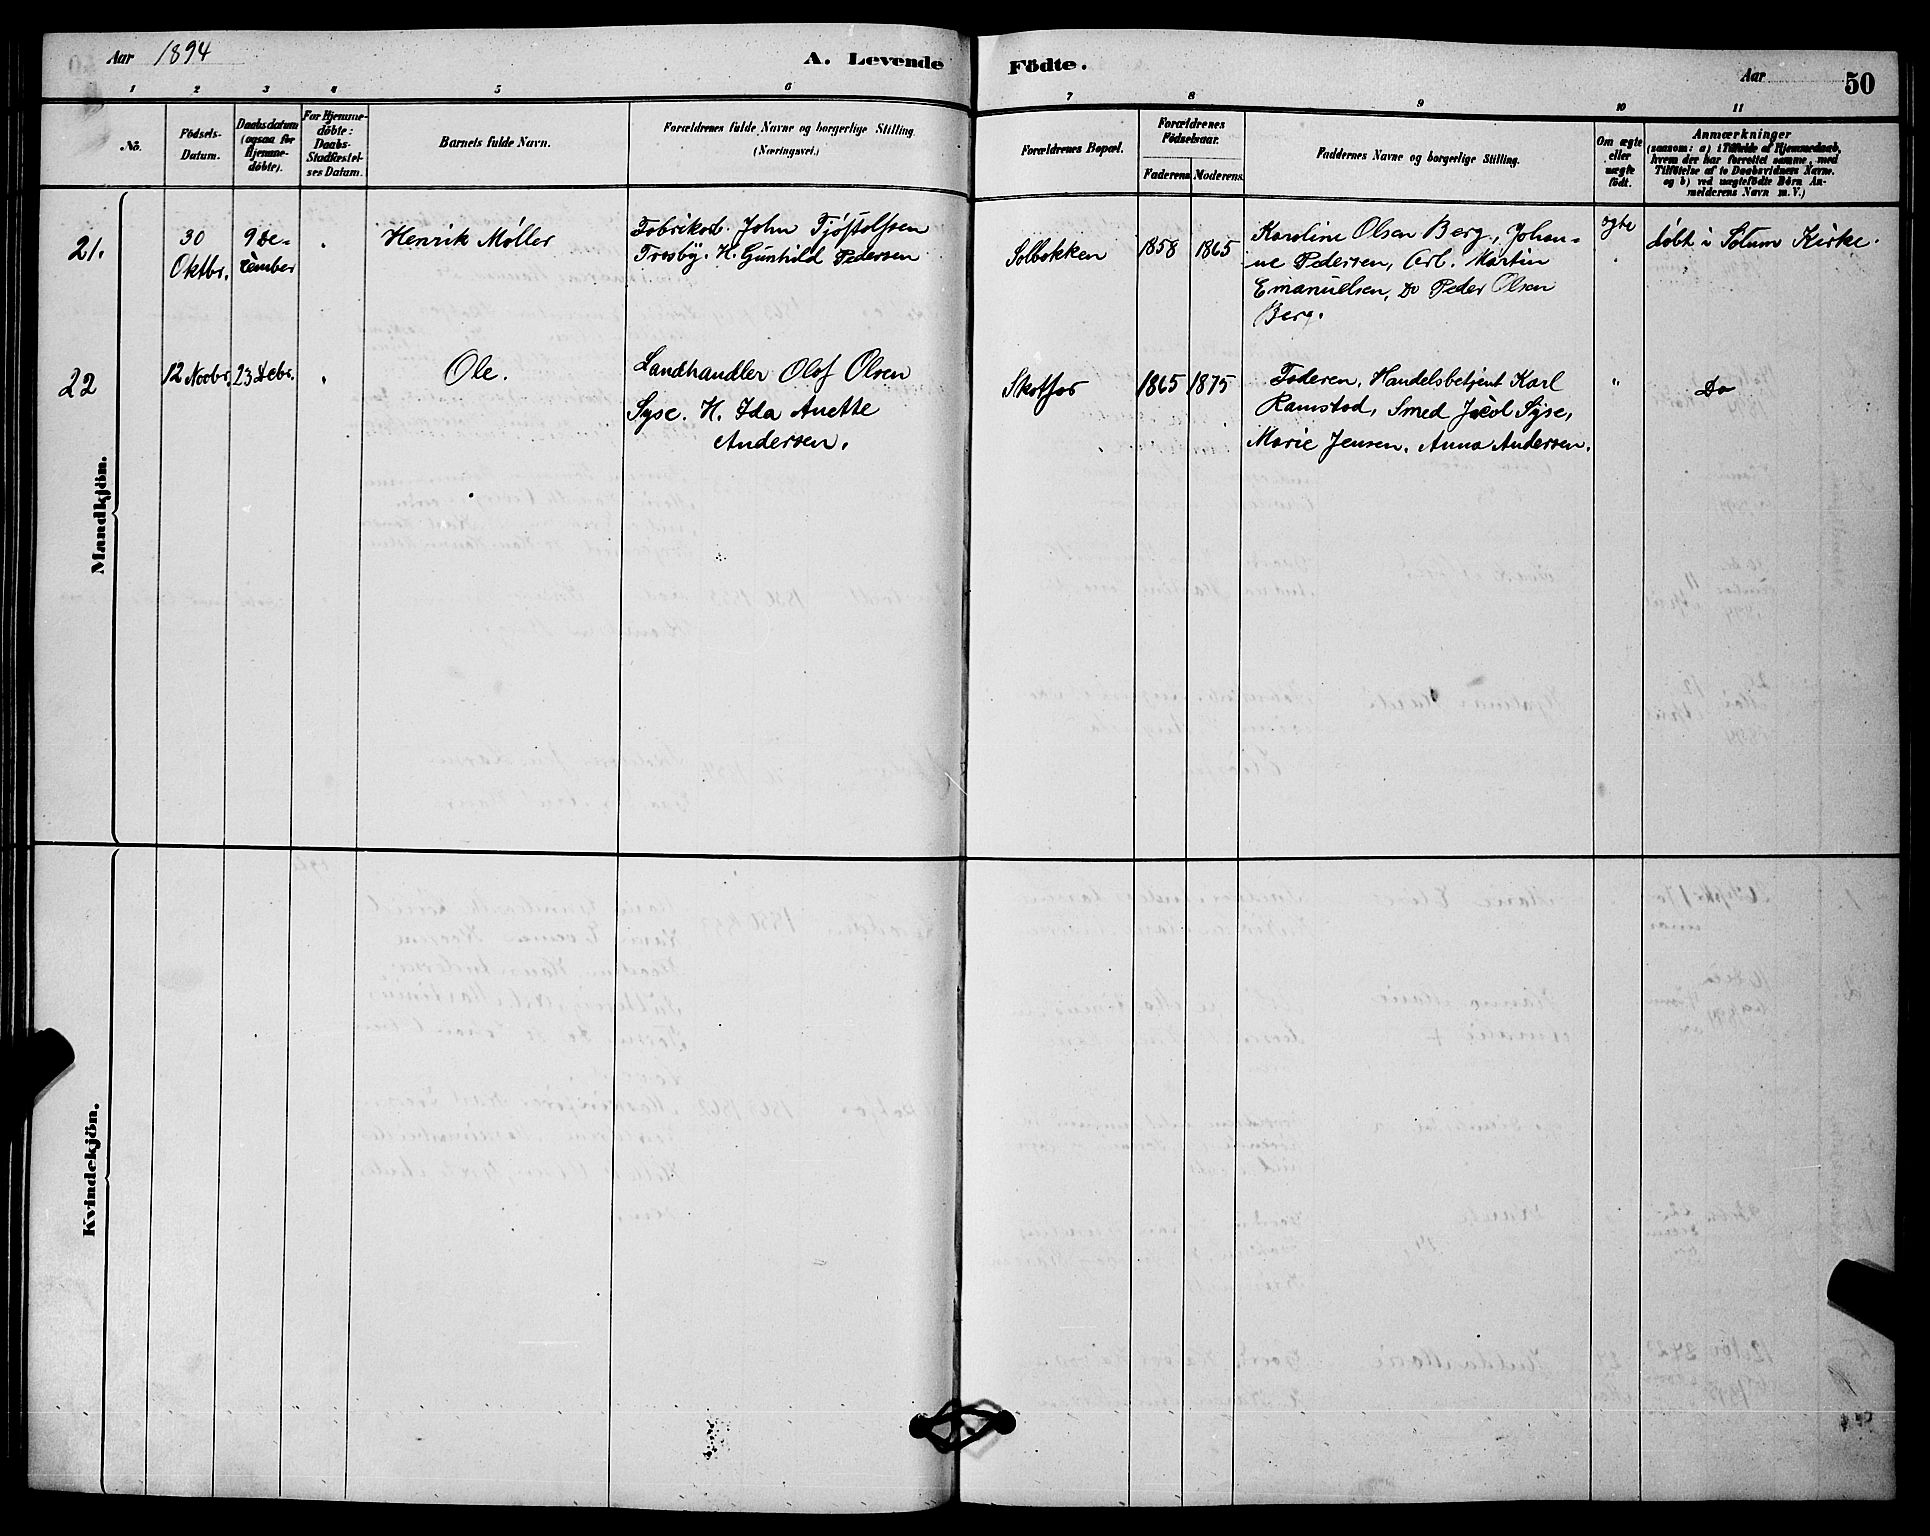 Aar 1894 A. Levende Födte. Aar 50
1 2 3 4 5 6 7 8 9 10 11
No.
Födsels-
Datum.
Daabsdatum
(ogsaa for
Hjemme-
döbte).
For Hjemme-
döbte:
Daabs-
Stadfæstel-
ses Datum.
Barnets fulde Navn.
Forældrenes fulde Navne og borgerlige Stilling.
(Næringsvei.)
Forældrenes Bopæl.
Forældrenes
Födselsaar.
Faderens Moderens.
Faddernes Navne og borgerlige Stilling.
Om ægte
eller
uægte
födt.
Anmærkninger
(saasom: a) i Tilfælde af Hjemmedaab,
hvem der har forrettet samme, med
Tilföielse af to Daabsvidners Navne,
og b) ved uægtefödte Börn An-
melderens Navn m. V.)
Mandkjön.
21.
30
Oktbr.
9 De-
cember
Henrik Møller
Fabrikarb. John Tjøstolfsen
Fresby. H. Gunhild Pedersen
Solbakken
1858 1865
Karoline Olsen Berg, Johan-
ne Pedersen, Arb. Martin
Emanuelsen, Do Peder Olsen
Berg.
ægte
døbt i Solum Kirke.
22
12 Novbr. 23 Debr.
Ole.
Landhandler Olof Olsen
Syse. H. Ida Anette
Andersen.
Skotfos
1865 1875
Faderen, Handelsbetjent Karl
Ramstad, Smed Jacob Syse,
Marie Jensen, Anna Andersen.
"
Do
Kvindekjön.